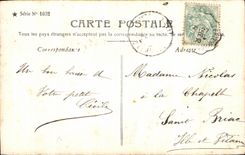 Série N° 1032
CARTE POSTALE
Tous les pays étrangers n'acceptent pas la correspondance au recto, se renseigner à la poste
Correspondance
Adresse
Un bon baiser de
Votre petit
Cécile
Madame Nicolas
à la Chapelle
Saint Briac
Ille et Vilaine